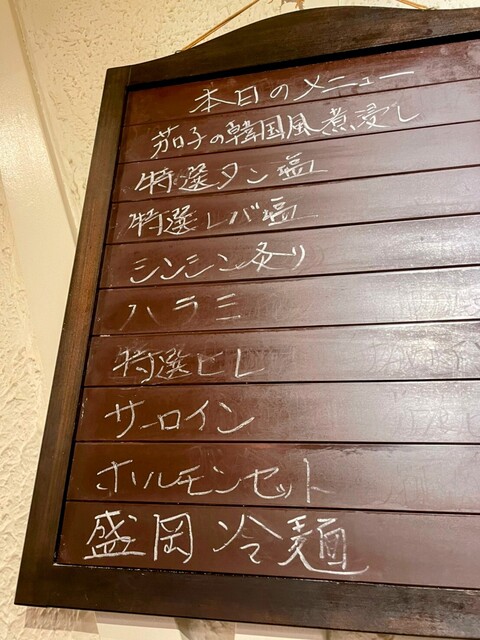 本日のメニュー
茄子の韓国風煮浸し
特選タン塩
特選レバ塩
シンシン炙り
ハラミ
特選ヒレ
サーロイン
ホルモンセット
盛岡冷麺